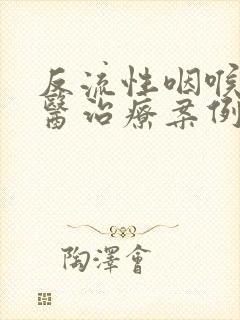 反流性咽喉
醫治療案例
陶澤會